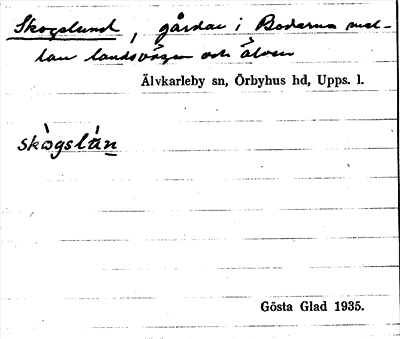 Skogslund, gårdar i Bodarna mel-
lan landsvägen och älven
Älvkarleby sn, Örbyhus hd, Upps. l.
skògslán
Gösta Glad 1935.